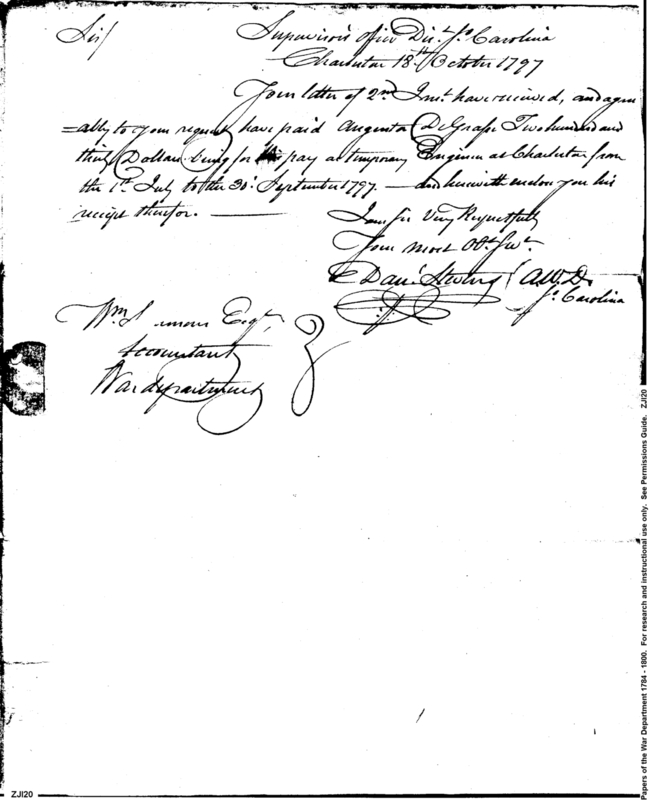 Sir/
Supervisor's office Dist. So. Carolina
Charleston 18th October 1797
Your letter of 2nd Inst. have received, and agree
=ably to your request have paid Augustus De Grasse Two hundred and
thirty Dollars being for his pay as temporary Engineer at Charleston from
the 1st July to the 30: September 1797. — and herewith enclose you his
receipt therefor. —
I am Sir Very Respectfully
Your most Obt. Svt.
Danl. Stevens
So. Carolina
Wm Simmons Esqr.
Accountant
War department
Papers of the War Department 1784 - 1800. For research and instructional use only. See Permissions Guide. ZJI20
ZJI20